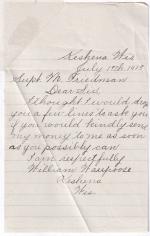 Keshena Wis
July 15th, 1918
Supt M. Friedman
Dear Sir,
I thought I would drop
you a few lines to ask you
if you would kindly send
my money to me as soon
as you possibly can
I am respectfully
William
Keshena
Wis